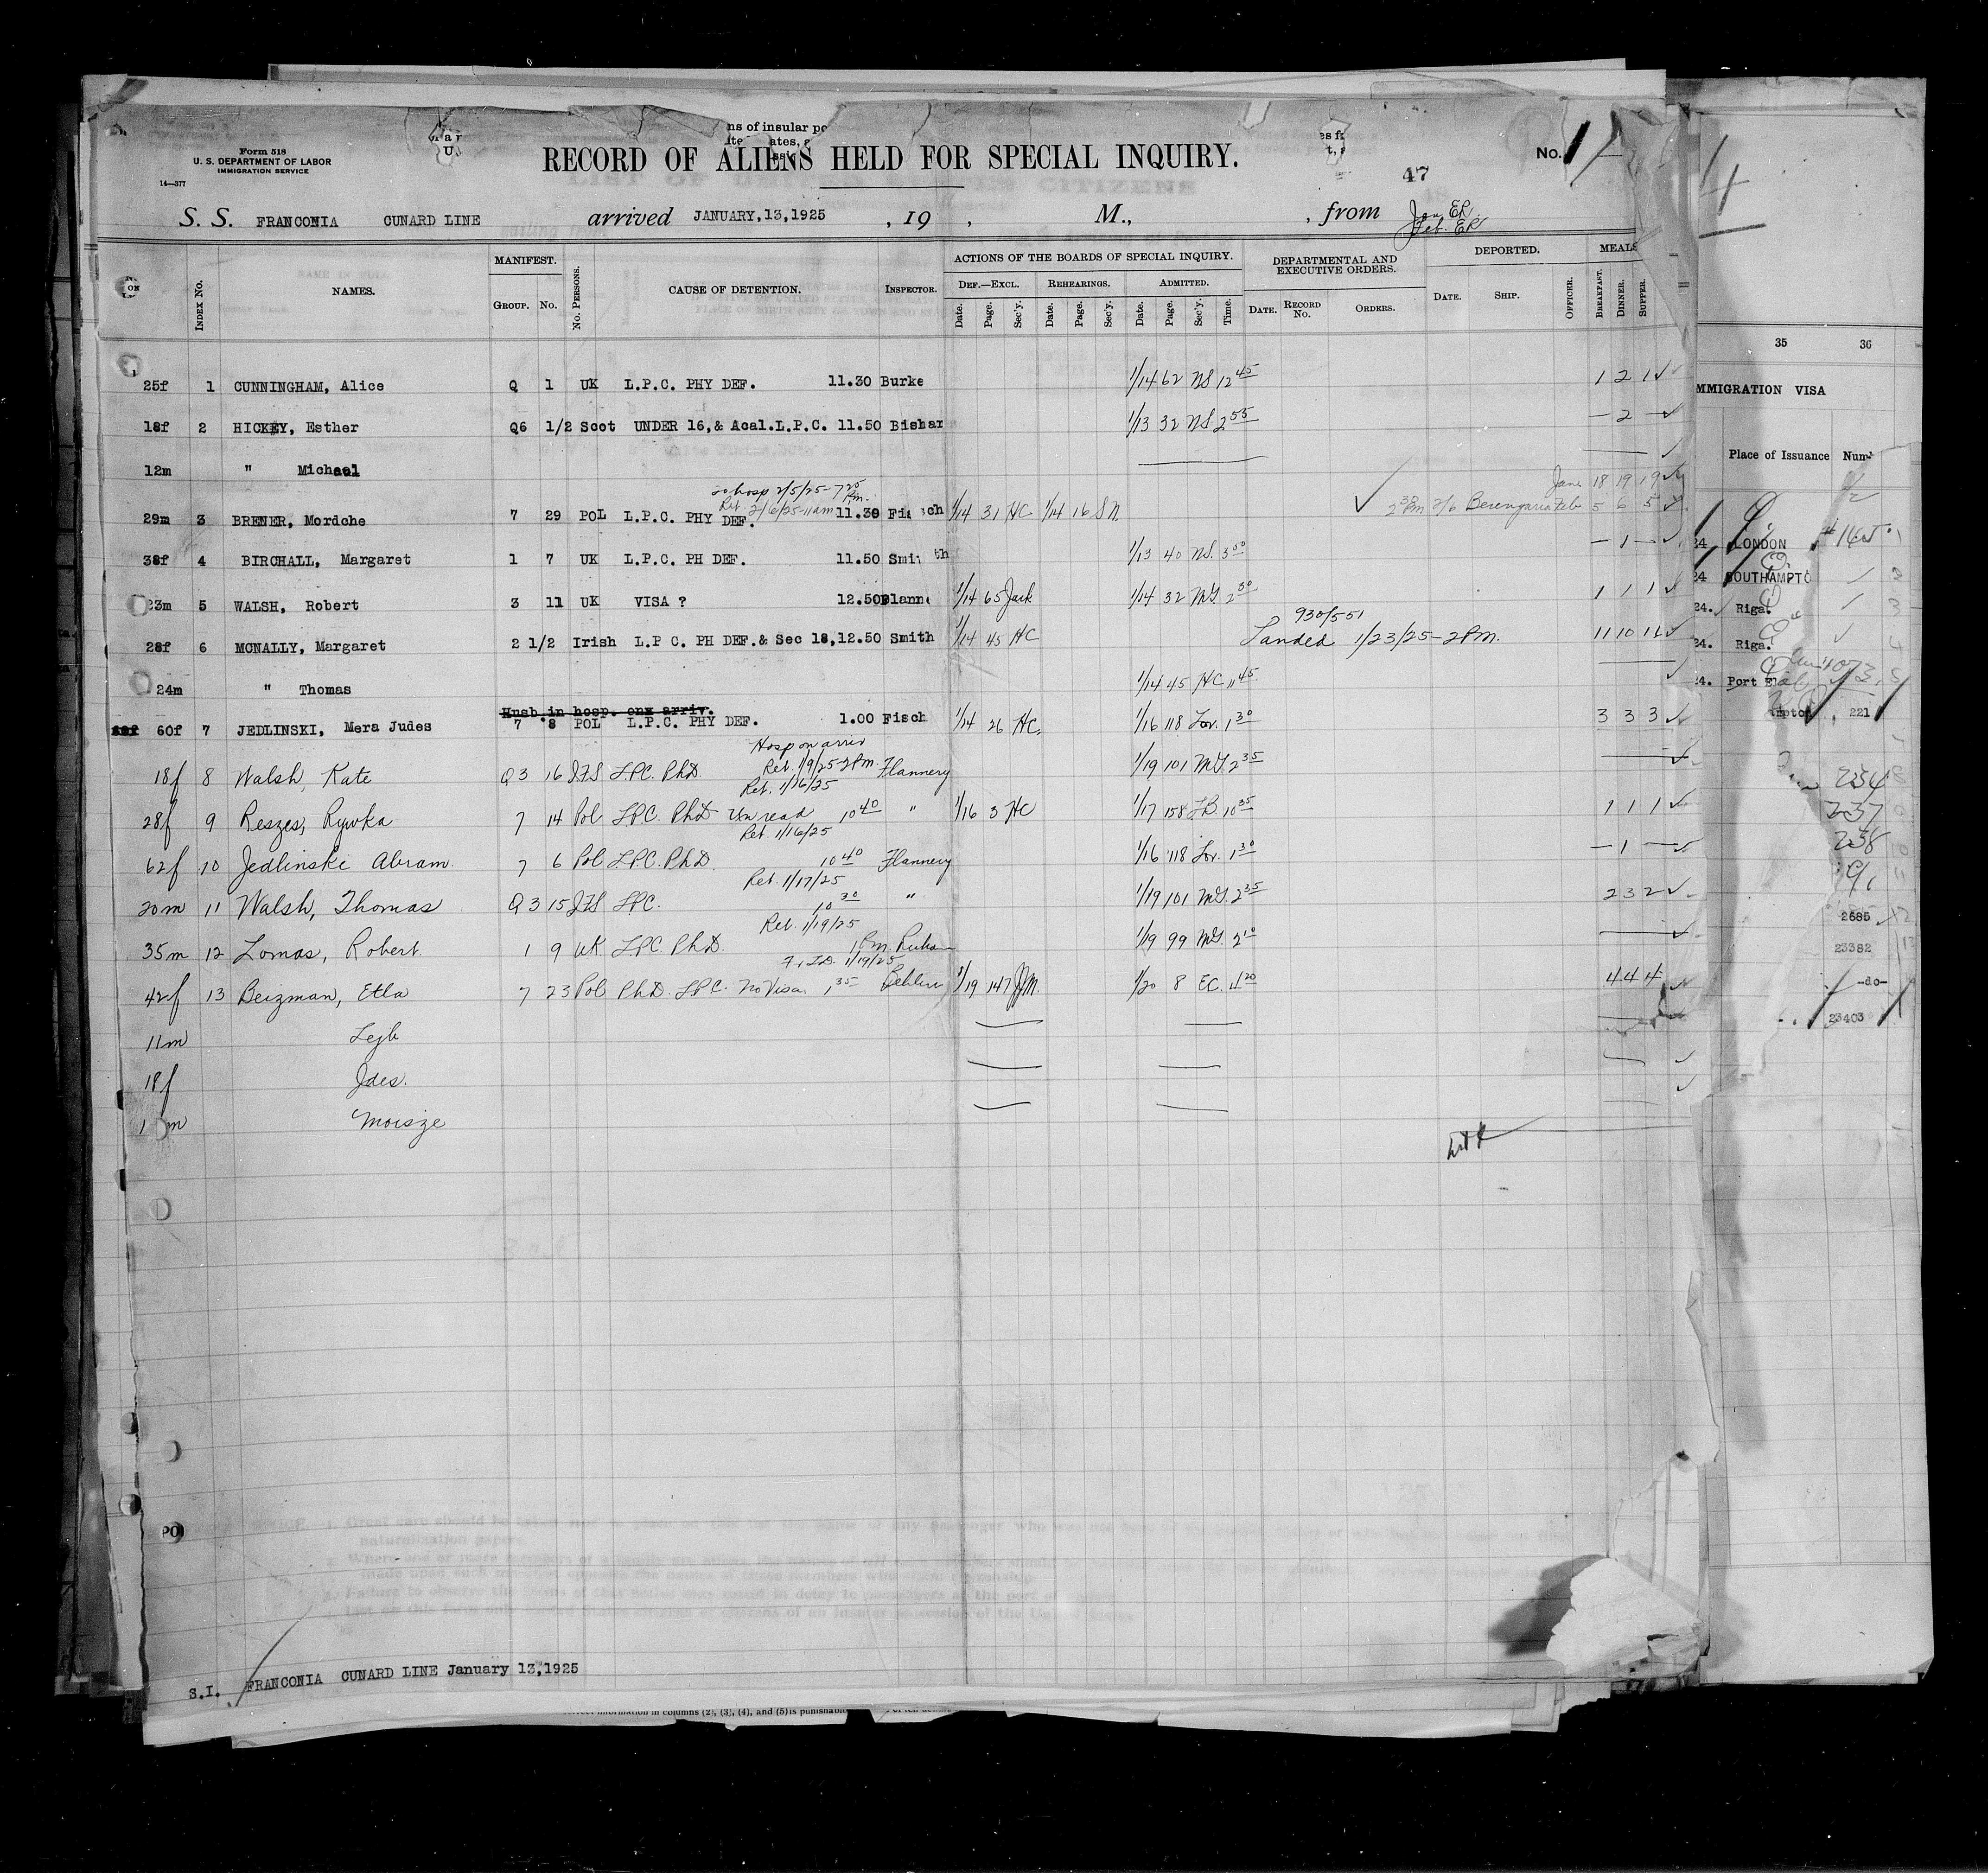 ns of insular po
ates,
Form 518
U. S. DEPARTMENT OF LABOR
IMMIGRATION SERVICE
14—377
RECORD OF ALIENS HELD FOR SPECIAL INQUIRY.
No. 1
47
S. S. FRANCONIA CUNARD LINE arrived JANUARY,13,1925 , 19 , M., , from Jan. ER.
Feb. ER
INDEX No. NAMES. MANIFEST. GROUP. No. No. PERSONS. CAUSE OF DETENTION. INSPECTOR. ACTIONS OF THE BOARDS OF SPECIAL INQUIRY. DEPARTMENTAL AND EXECUTIVE ORDERS. DEPORTED. MEALS
DEF.—EXCL. REHEARINGS. ADMITTED.
Date. Page. Sec'y. Date. Page. Sec'y. Date. Page. Sec'y. Time. DATE. RECORD No. ORDERS. DATE. SHIP. OFFICER. BREAKFAST. DINNER. SUPPER.
25f 1 CUNNINGHAM, Alice Q 1 UK L.P.C. PHY DEF. 11.30 Burke 1/14 62 NS 12 45 1 2 1
18f 2 HICKEY, Esther Q6 1/2 Scot UNDER 16,& Acal.L.P.C. 11.50 Bishar 1/13 32 NS 2 55 — 2 —
12m " Michael
to hosp 2/5/25-7 25 Pm.
Ret 2/6/25-11am
29m 3 BRENER, Mordche 7 29 POL L.P.C. PHY DEF. 11.30 Fi ch 1/14 31 HC 1/14 16 SN. Jan. 18 19 19
2 30 Pm 2/6 Berengaria Feb 5 6 5
38f 4 BIRCHALL, Margaret 1 7 UK L.P.C. PH DEF. 11.50 Smi th 1/13 40 NS. 3 00 — 1 —
23m 5 WALSH, Robert 3 11 UK VISA ? 12.50 Flann 1/14 65 Jack 1/14 32 MG 2 30 1 1 1
930/551
28f 6 MCNALLY, Margaret 2 1/2 Irish L.P C. PH DEF.& Sec 18, 12.50 Smith 1/14 45 HC Landed 1/23/25-2 PM. 11 10 11
24m " Thomas 1/14 45 HC 11 45
Husb in hosp. on arriv.
60f 7 JEDLINSKI, Mera Judes 7 8 POL L.P.C. PHY DEF. 1.00 Fisch 1/14 26 HC. 1/16 118 Lov. 1 30 3 3 3
Hosp on arriv
Ret. 1/9/25 2Pm.
18f 8 Walsh, Kate Q 3 16 IFS LPC. PhD. Flannery 1/19 101 MG 2 35
Ret. 1/16/25
28f 9 Reszes, Rywka 7 14 Pol LPC. PhD Un read 10 40 " 1/16 3 HC 1/17 158 LB. 10 35 1 1 1
Ret. 1/16/25
62f 10 Jedlinski Abram. 7 6 Pol LPC. PhD. 10 40 Flannery 1/16 118 Lov. 1 30 — 1 —
Ret. 1/17/25
20m 11 Walsh, Thomas Q 3 15 IFS LPC. 10 30 " 1/19 101 MG. 2 35 2 3 2
Ret. 1/19/25
35m 12 Lomas, Robert. 1 9 UK LPC PhD. 1 Pm 1/19 99 MG. 2 10
1/19/25
42f 13 Beizman, Etla 7 23 Pol PhD. LPC. No Visa. 1 35 1/19 147 JM. 1/20 8 EC. 4 20 4 4 4
11m Lejb
18f Ides.
1 m Moisze
S.I. FRANCONIA CUNARD LINE January 13,1925
rrect information in columns (2), (3), (4), and (5) is punishab
35 36
MMIGRATION VISA
Place of Issuance Num
24 LONDON
24 SOUTHAMPTO
24. Riga.
24. Riga.
24. Port E
mpton 221
234
237
238
2685
23382
-do-
23403